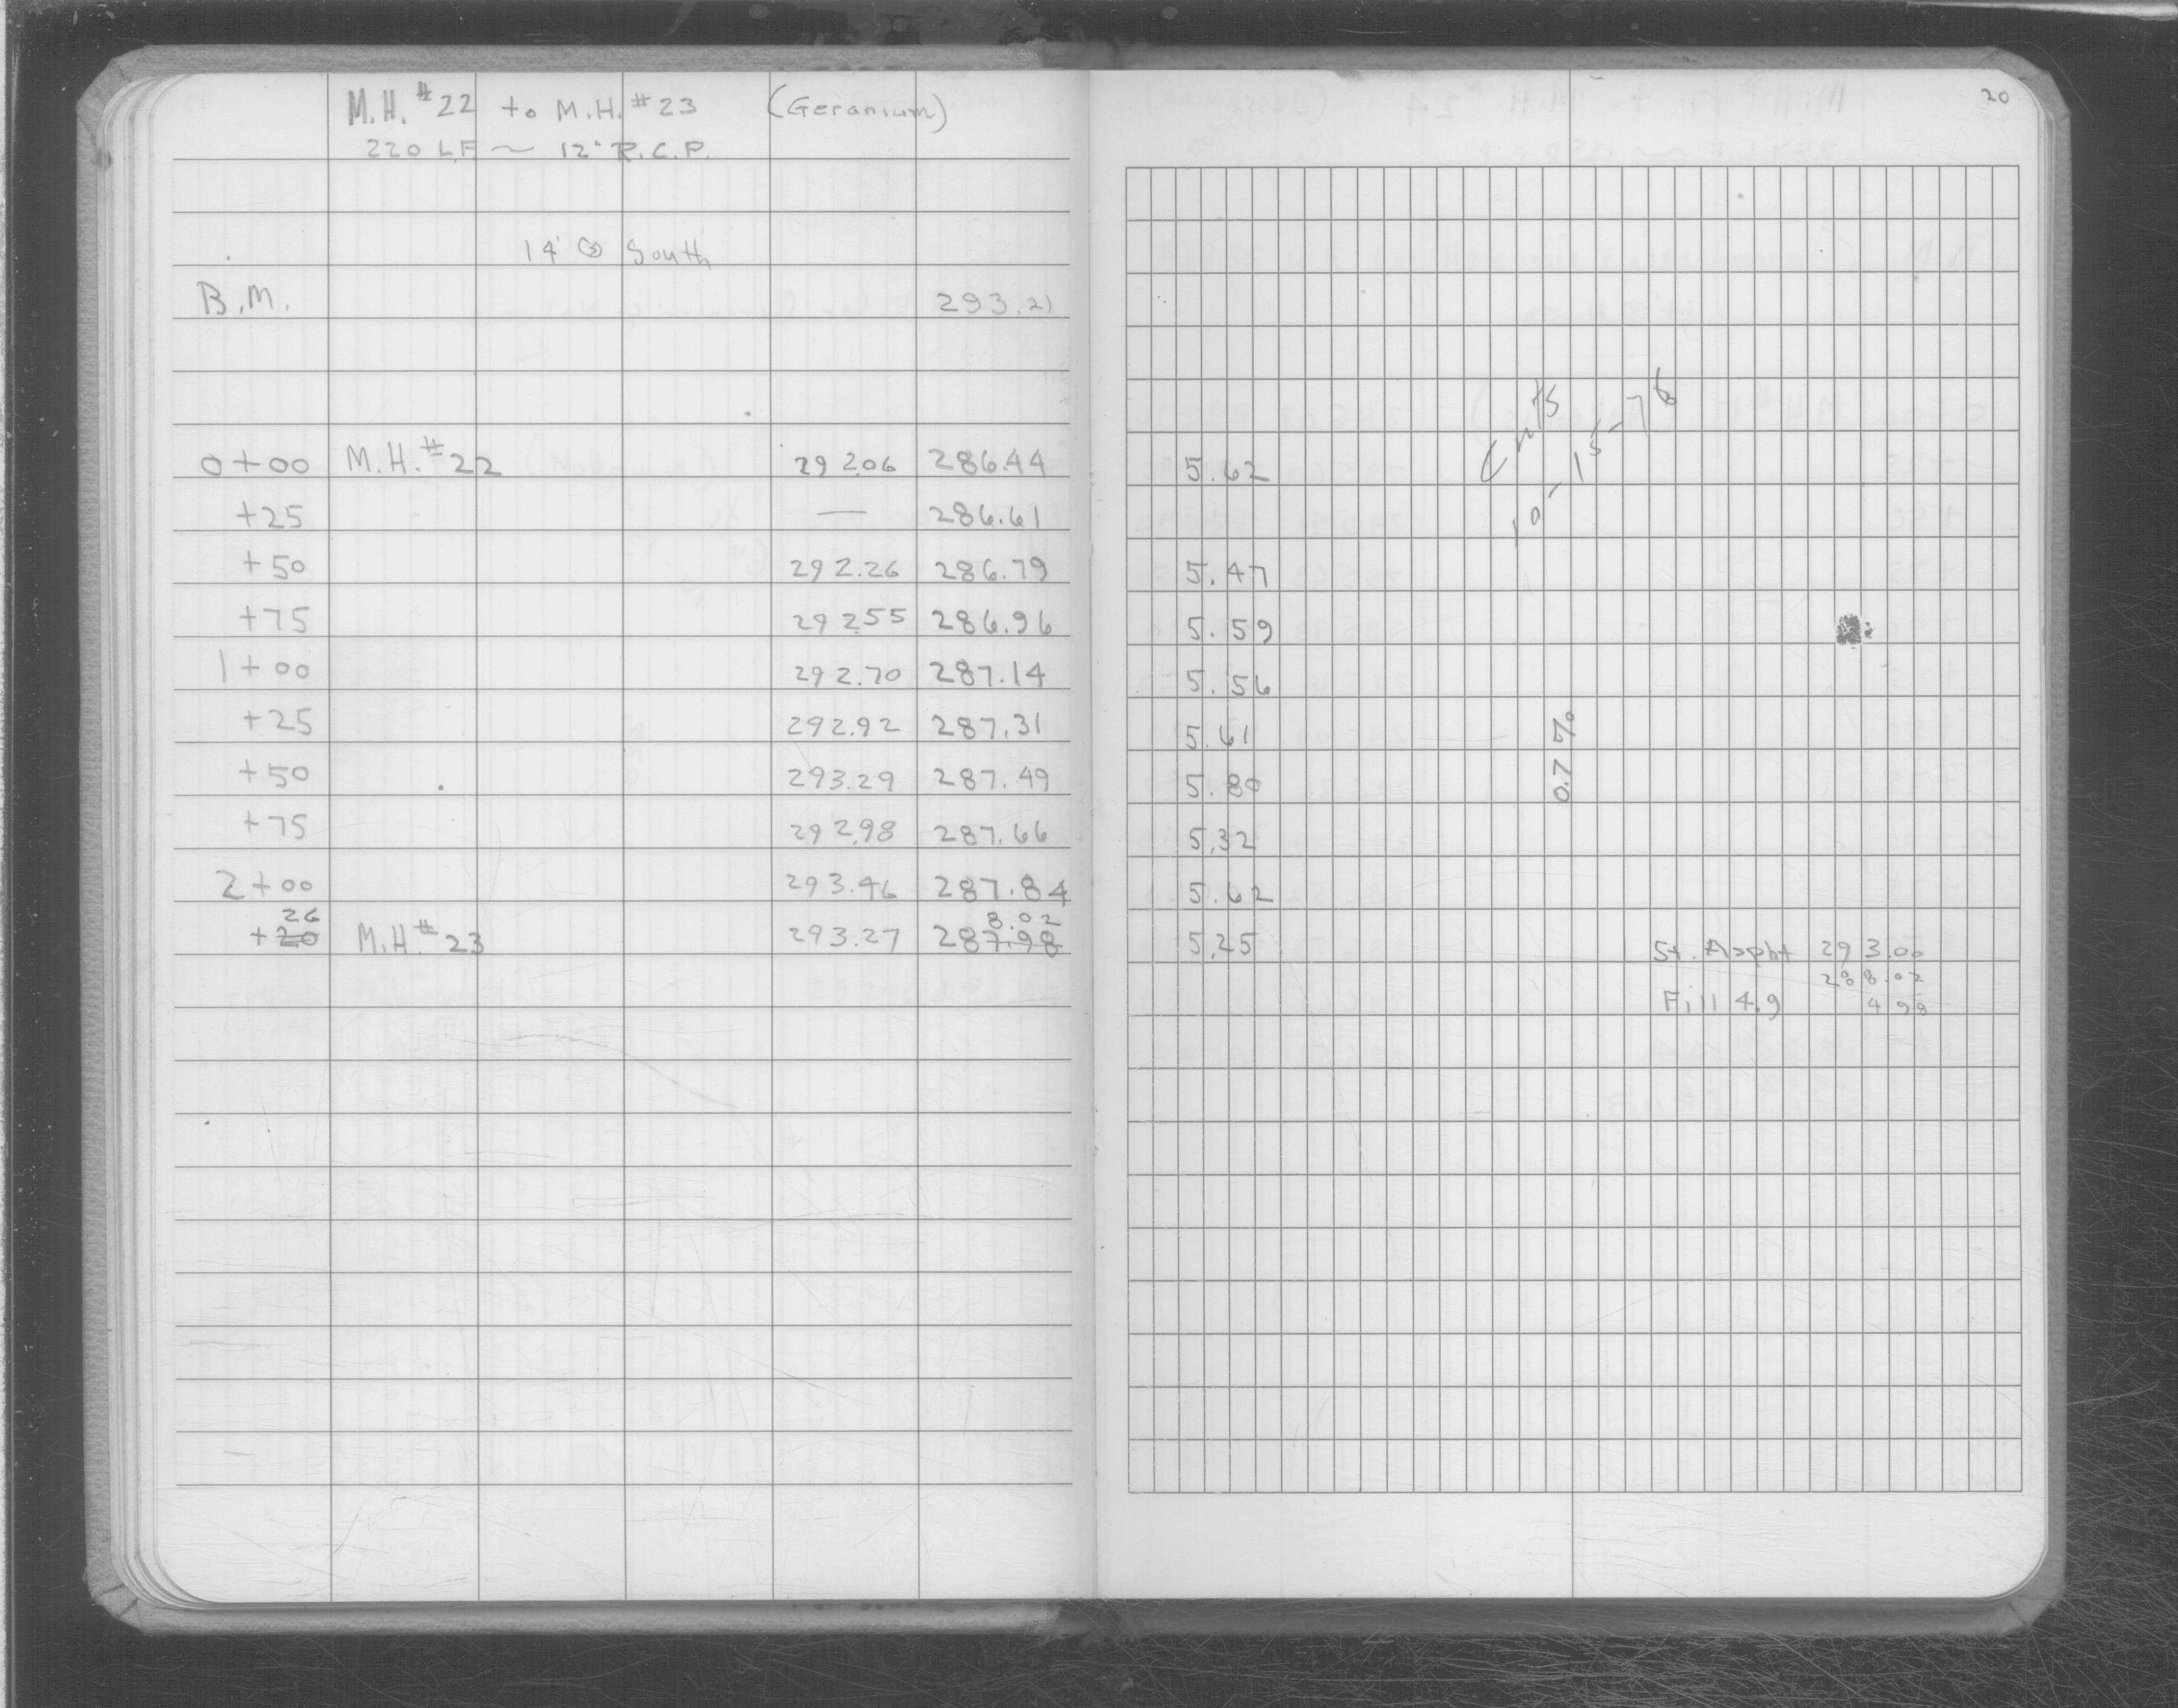 M.H. #22 to M.H. #23 (Geranium)
220 LF ~ 12" R.C.P.
14' South
B.M. 293.21
0+00 M.H. #22 292.06 286.44
+25 — 286.61
+50 292.26 286.79
+75 292.55 286.96
1+00 292.70 287.14
+25 292.92 287.31
+50 293.29 287.49
+75 292.98 287.66
2+00 293.46 287.84
26 8.02
+20 M.H. #23 293.27 287.98
20
Cuts
10-15-76
5.62
5.47
5.59
5.56
5.61
5.80
5.32
5.62
5.25
0.7%
St. Aspht 293.00
288.02
Fill 4.9 4 98